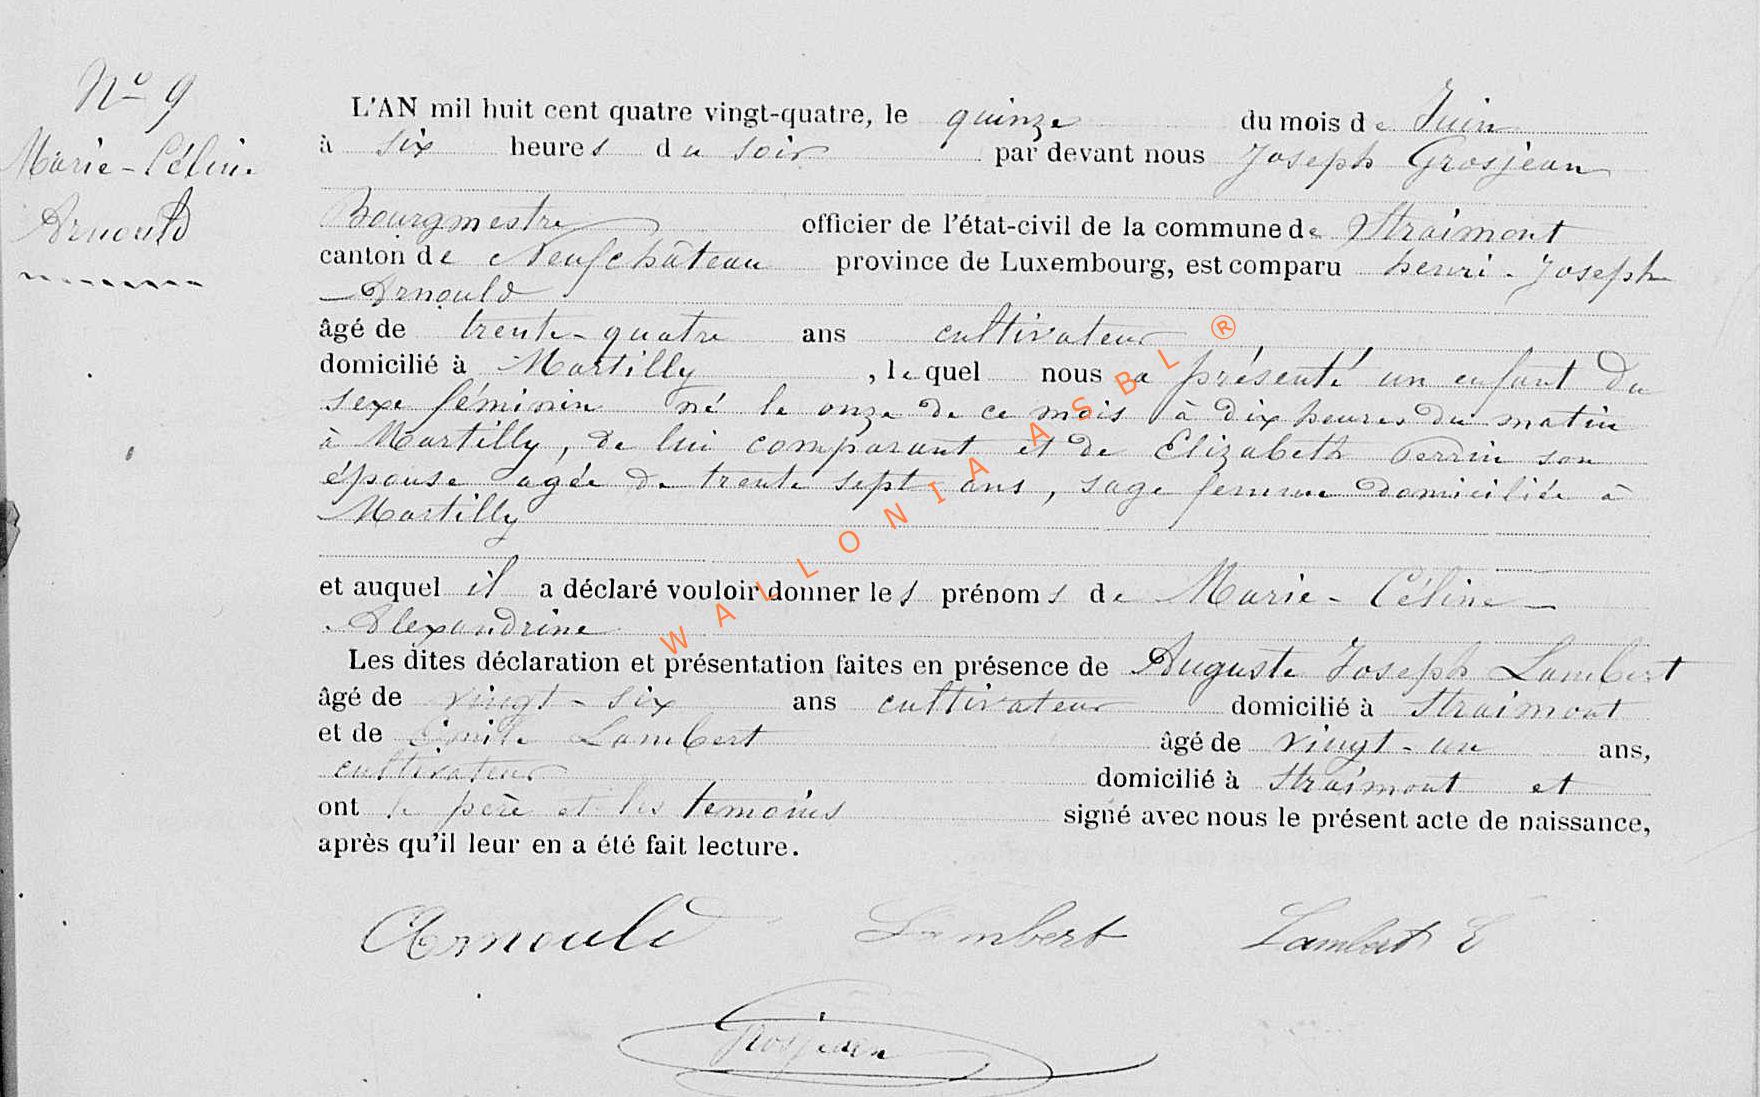 N° 9
Marie-Céline
Arnould
L'AN mil huit cent quatre vingt-quatre, le quinze du mois de Juin
à six heures du soir par devant nous Joseph Grosjean
Bourgmestre officier de l'état-civil de la commune de Straimont
canton de Neufchâteau province de Luxembourg, est comparu henri-Joseph
Arnould
âgé de trente-quatre ans cultivateur
domicilié à Martilly, lequel nous a présenté un enfant du
sexe féminin né le onze de ce mois à dix heures du matin
à Martilly, de lui comparant et de Elizabeth Perrin son
épouse agée de trente sept ans, sage femme domiciliée à
Martilly
et auquel il a déclaré vouloir donner les prénoms de Marie-Céline-
Alexandrine
Les dites déclaration et présentation faites en présence de Auguste Joseph Lambert
âgé de vingt-six ans cultivateur domicilié à Straimont
et de Emile Lambert âgé de vingt-un ans,
cultivateur domicilié à Straimont et
ont le père et les temoins signé avec nous le présent acte de naissance,
après qu'il leur en a été fait lecture.
Arnould Lambert Lambert E
Grosjean
WALLONIA ASBL ®